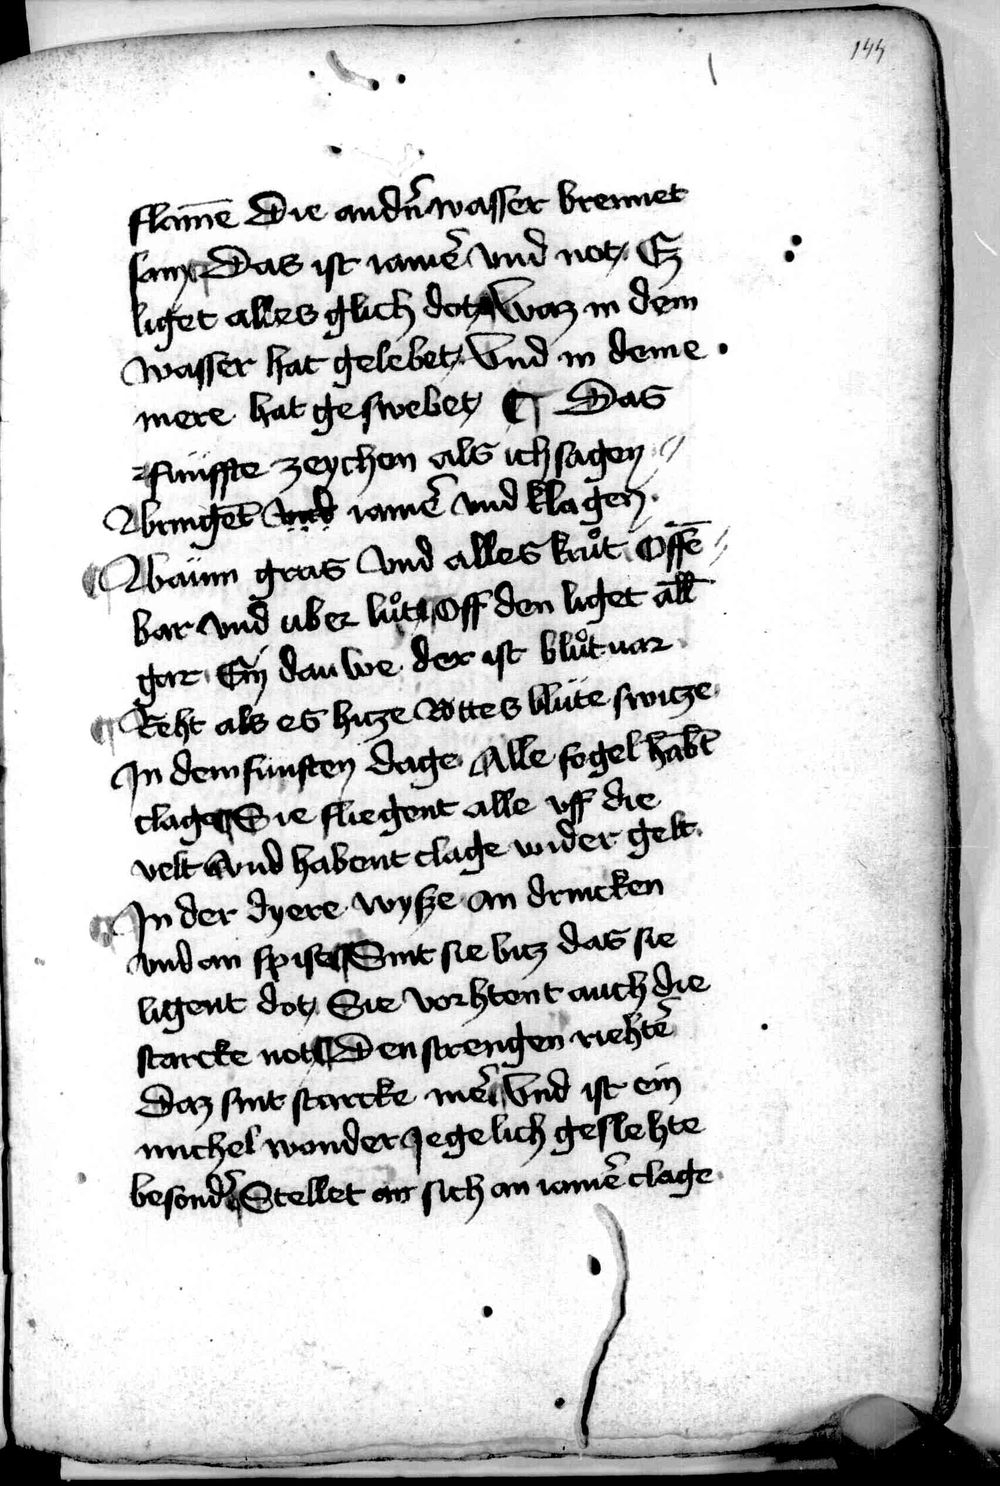 144
flam̄e Die andn̄ wasser brennet
sam Das ist iam̄er vnd not Ez
liget alles glich dot Waz in dem
wasser hat gelebet Vnd in deme
mere hat geswebet Das
funffte zeychen als ich sagen
Bringet vnd iamer vnd klagen
Baüm gras Vnd alles krůt Offē
bar vnd uber lůt Off den liget all
gar Ein dauwe der ist blůtuar
Reht als es hitze Rottes blüte switze
In dem funften dage Alle fogel habt
clage Sie fliegent alle uff die
velt Vnd habent clage wider gelt
In der dyere wysze an drincken
vnd an spise Sint sie bitz das sie
ligent dot Sie vorhtent auch die
starcke not Den strengen riehter
Daz sint starcke mer Vnd ist ein
michel wonder Jegelich geslehte
besonder Stellet an sich an iamer clage